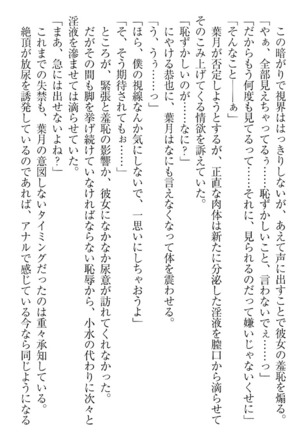 この暗がりで視界ははっきりしないが、あえて声に出すことで彼女の羞恥を煽る。
「やぁ、全部見えちゃってるぅ……恥ずかしいこと、言わないでぇ……っ」
「だってもう何度も見てるって……それに、見られるのだって嫌いじゃないくせに」
「そんなこと――ぁ」
葉月が否定しようとするが、正直な肉体は新たに分泌した淫液を膣口から滴らせて
そのこみ上げてくる情欲を訴えていた。
「恥ずかしいのが……なに?」
にやける恭也に、葉月はなにも言えなくなって体を震わせる。
「う、うぅ……っ」
「ほら、僕の視線なんか気にしないで、一思いにしちゃおうよ」
「そ、そう期待されてもぉ……」
ところが、緊張と羞恥の影響か、彼女になかなか尿意が訪れてくれなかった。
だがその間も脚を挙げ続けていなければならない恥辱から、小水の代わりに次々と
淫液を溢ませては滴らせていた。
「まあ、急には出せないよね?」
これまでの失禁も、葉月の意図しないタイミングだったのは重々承知している。
絶頂が放尿を誘発しているのであれば、アナルで感じている今なら同じようになる